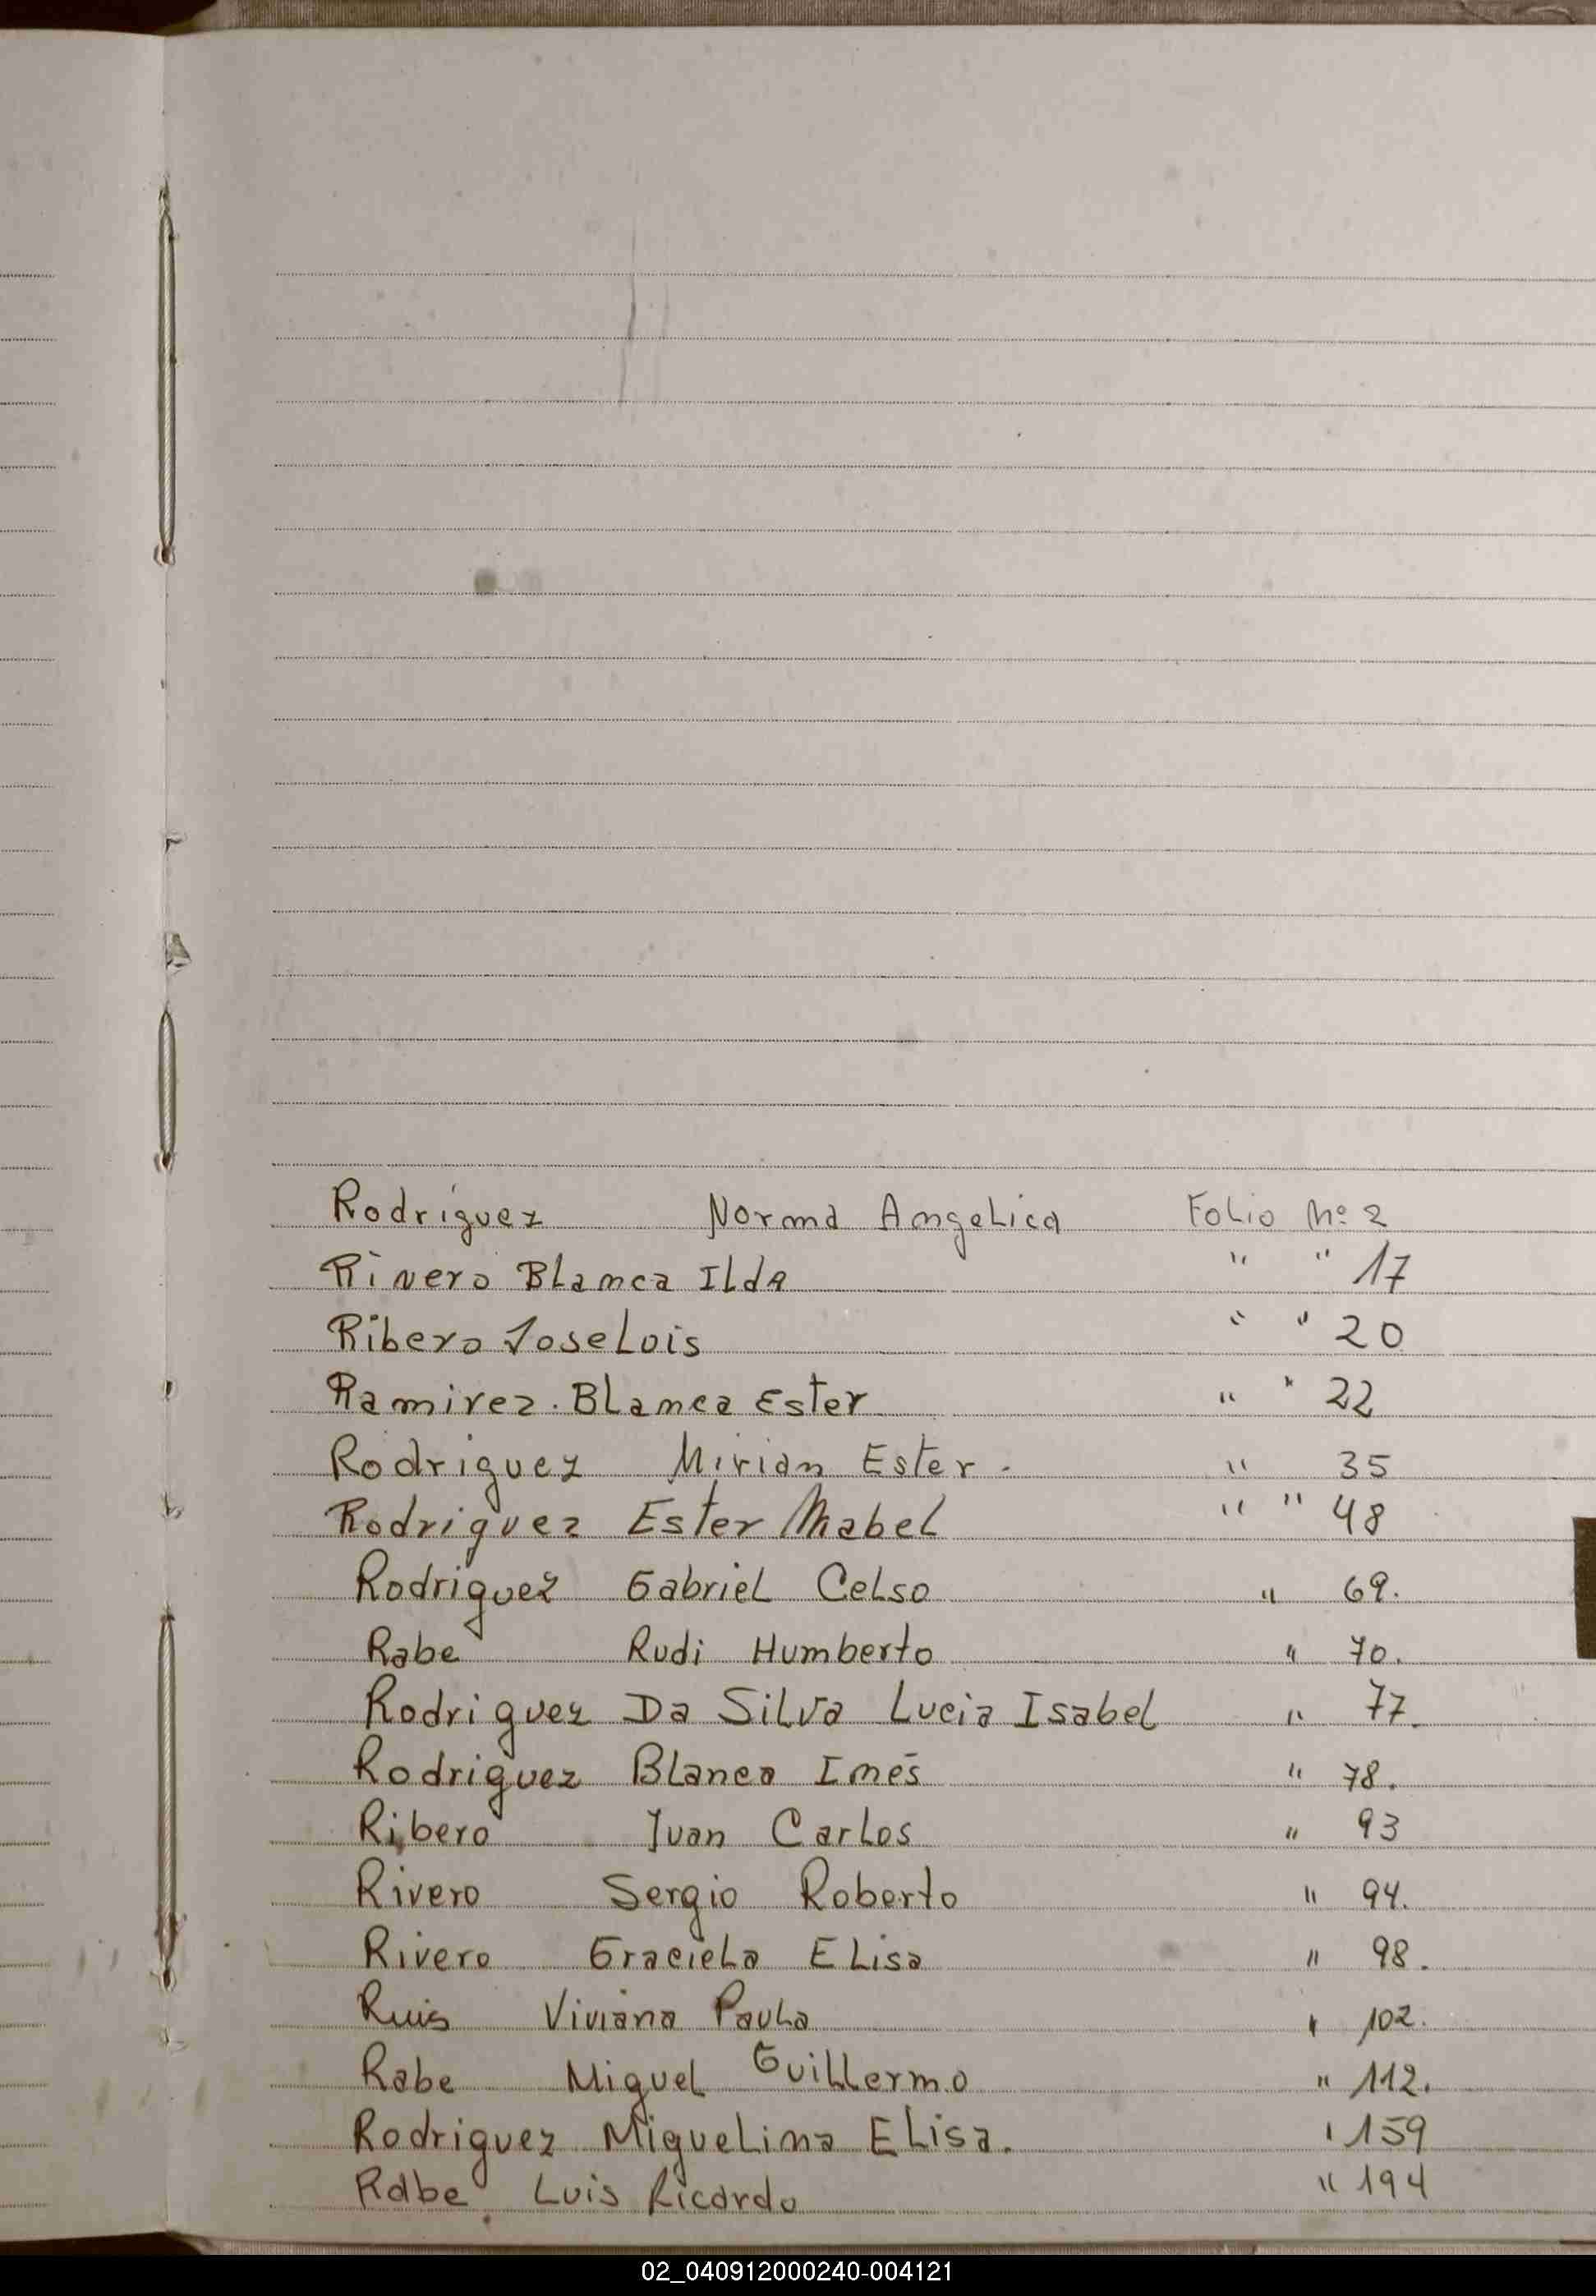 Rodríguez Norma Angelica Folio Nº 2
Rivero Blanca Ilda " " 17
Ribero Jose Luis " " 20
Ramirez. Blanca Ester " " 22
Rodriguez Mirian Ester. " 35
Rodriguez Ester Mabel " " 48
Rodriguez Gabriel Celso " 69.
Rabe Rudi Humberto " 70.
Rodriguez Da Silva Lucia Isabel " 77.
Rodriguez Blanca Inés " 78.
Ribero Juan Carlos " 93
Rivero Sergio Roberto " 94.
Rivero Graciela Elisa " 98.
Ruis Viviana Paula " 102.
Rabe Miguel Guillermo " 112.
Rodriguez Miguelina Elisa. " 159
Rabe Luis Ricardo " 194
02_040912000240-004121